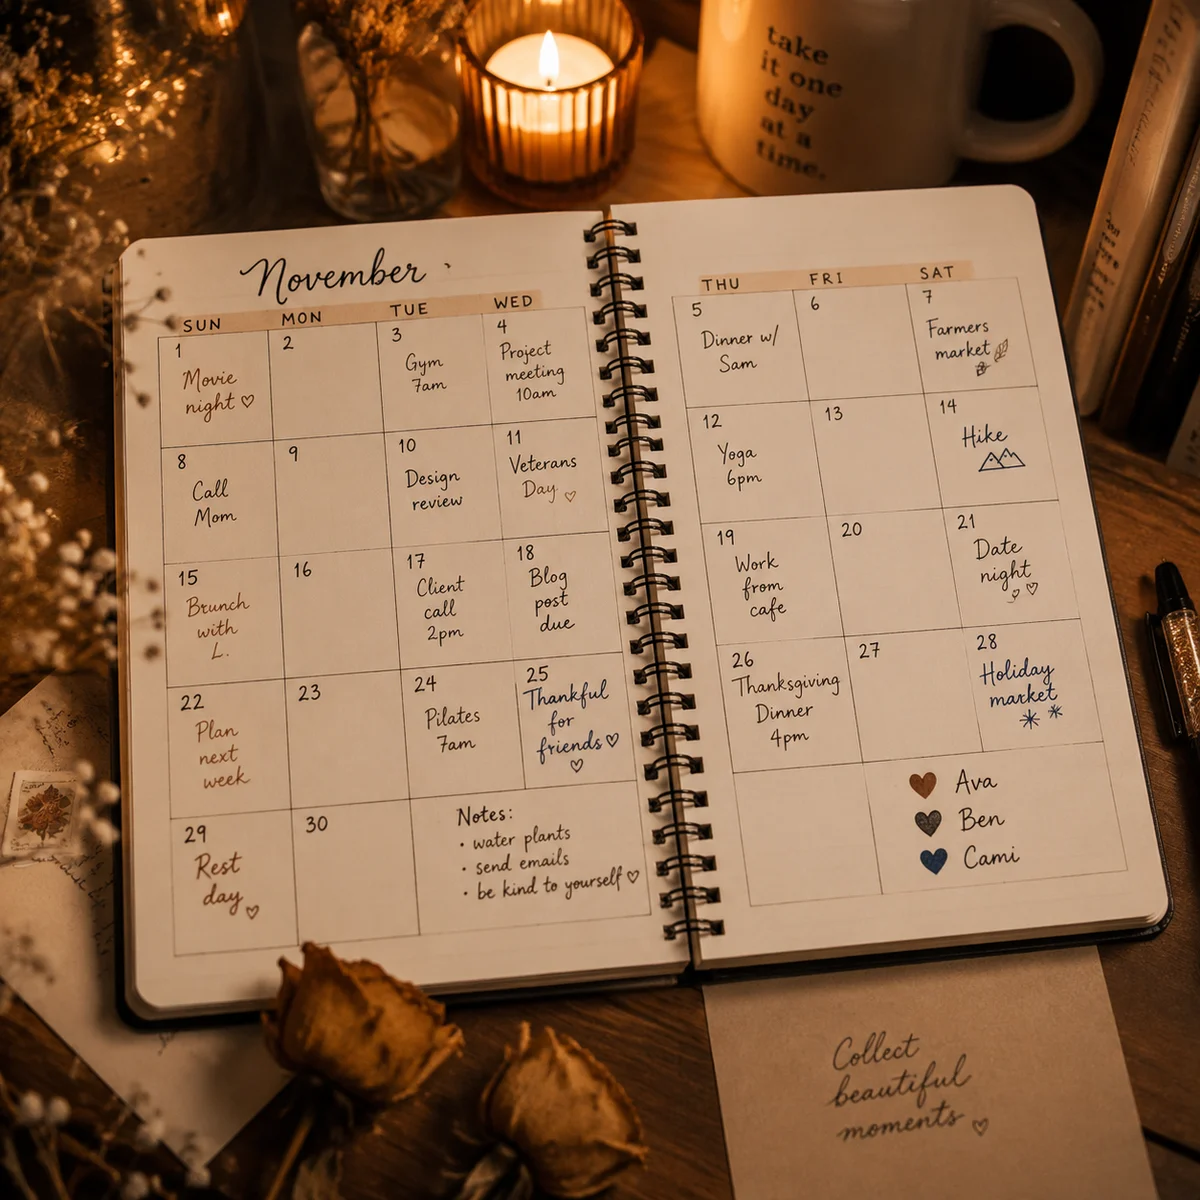 take
it one
day
at a
time.
November
SUN MON TUE WED THU FRI SAT
1
Movie
night ♡
2
3
Gym
7am
4
Project
meeting
10am
5
Dinner w/
Sam
6
7
Farmers
market
8
Call
Mom
9
10
Design
review
11
Veterans
Day ♡
12
Yoga
6pm
13
14
Hike
15
Brunch
with
L.
16
17
Client
call
2pm
18
Blog
post
due
19
Work
from
cafe
20
21
Date
night
♡ ♡
22
Plan
next
week
23
24
Pilates
7am
25
Thankful
for
friends ♡
♡
26
Thanksgiving
Dinner
4pm
27
28
Holiday
market
29
Rest
day ♡
30
Notes:
• water plants
• send emails
• be kind to yourself ♡
Ava
Ben
Cami
Collect
beautiful
moments ♡